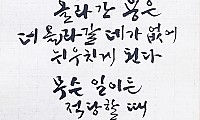 올라간 용은
더 올라갈 데가 없에
뉘우치게 된다
무슨 일이든
적당할 때